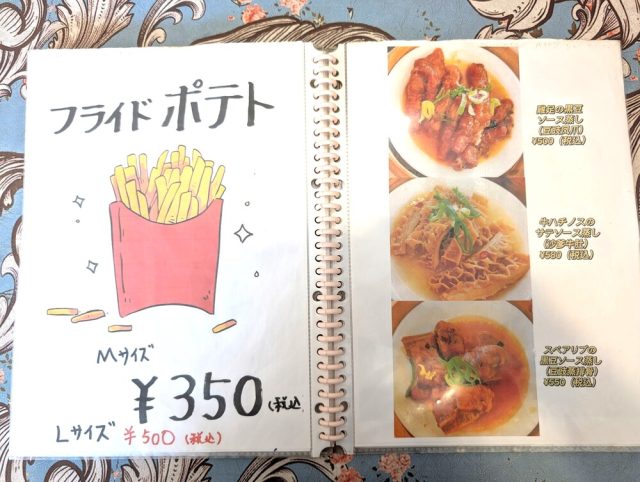 フライド ポテト
Mサイズ
¥350(税込
Lサイズ ¥500(税込)
鶏足の黒豆
ソース蒸し
(豆豉凤爪)
¥500(税込)
牛ハチノスの
サテソース蒸し
(沙爹牛肚)
¥580(税込)
スペアリブの
黒豆ソース蒸し
(豆豉蒸排骨)
¥550(税込)